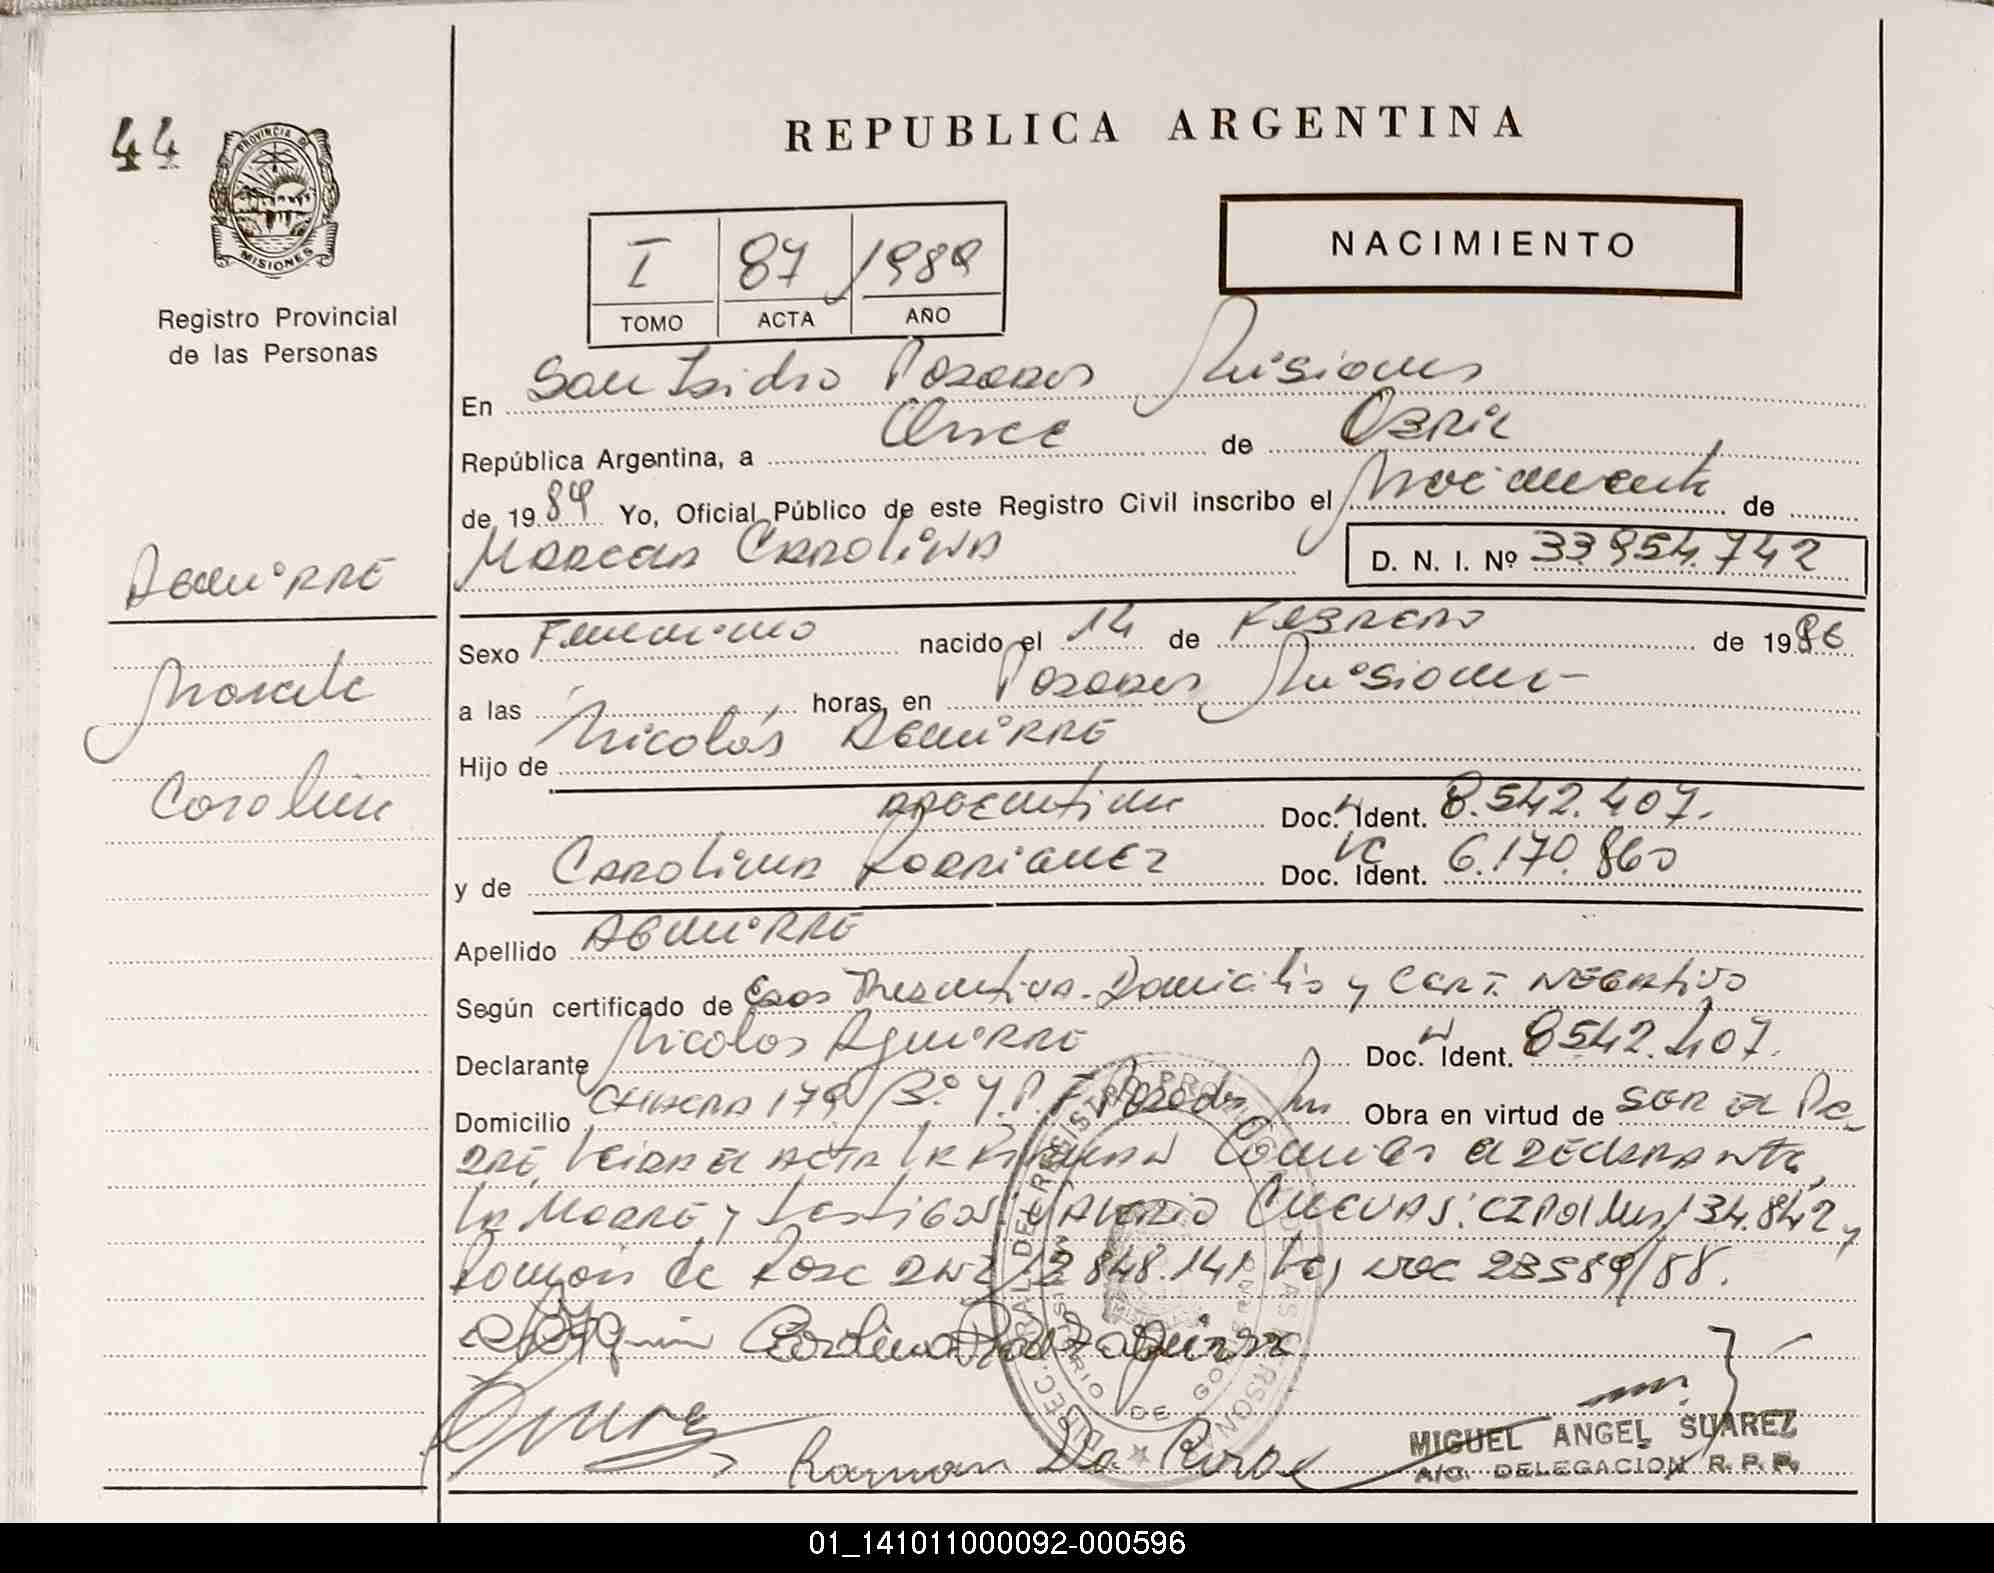 44
PROVINCIA DE
MISIONES
Registro Provincial
de las Personas
REPUBLICA ARGENTINA
I 87 / 1989
TOMO ACTA AÑO
NACIMIENTO
En San Isidro Posadas Misiones
República Argentina, a Once de Abril
de 1989 Yo, Oficial Público de este Registro Civil inscribo el Nacimiento de
Marcela Carolina D. N. I. Nº 33954.742
AGUIRRE
Marcela
Carolina
Sexo Femenino nacido el 14 de Febrero de 1986
a las horas, en Posadas Misiones
Hijo de Nicolás AGUIRRE
argentina Doc. Ident. 8.542.407.
y de Carolina Rodriguez LC Doc. Ident. 6.170.860
Apellido AGUIRRE
Según certificado de Domicilio y CERT. NEGATIVO
Declarante Nicolas Aguirre Doc. Ident. 8542.407.
Domicilio CHACRA 179 Posadas Obra en virtud de SER EL PA-
DRE, Leida el ACTA LA FIRMAN el DECLARANTE,
LA MADRE y Testigos: CUEVAS: 134.842 y
Ramón de Rosa DNI 12848.141 23589/88.
Ramon Da Rosa
MIGUEL ANGEL SUAREZ
A/C. DELEGACION R. P. P.
01_141011000092-000596